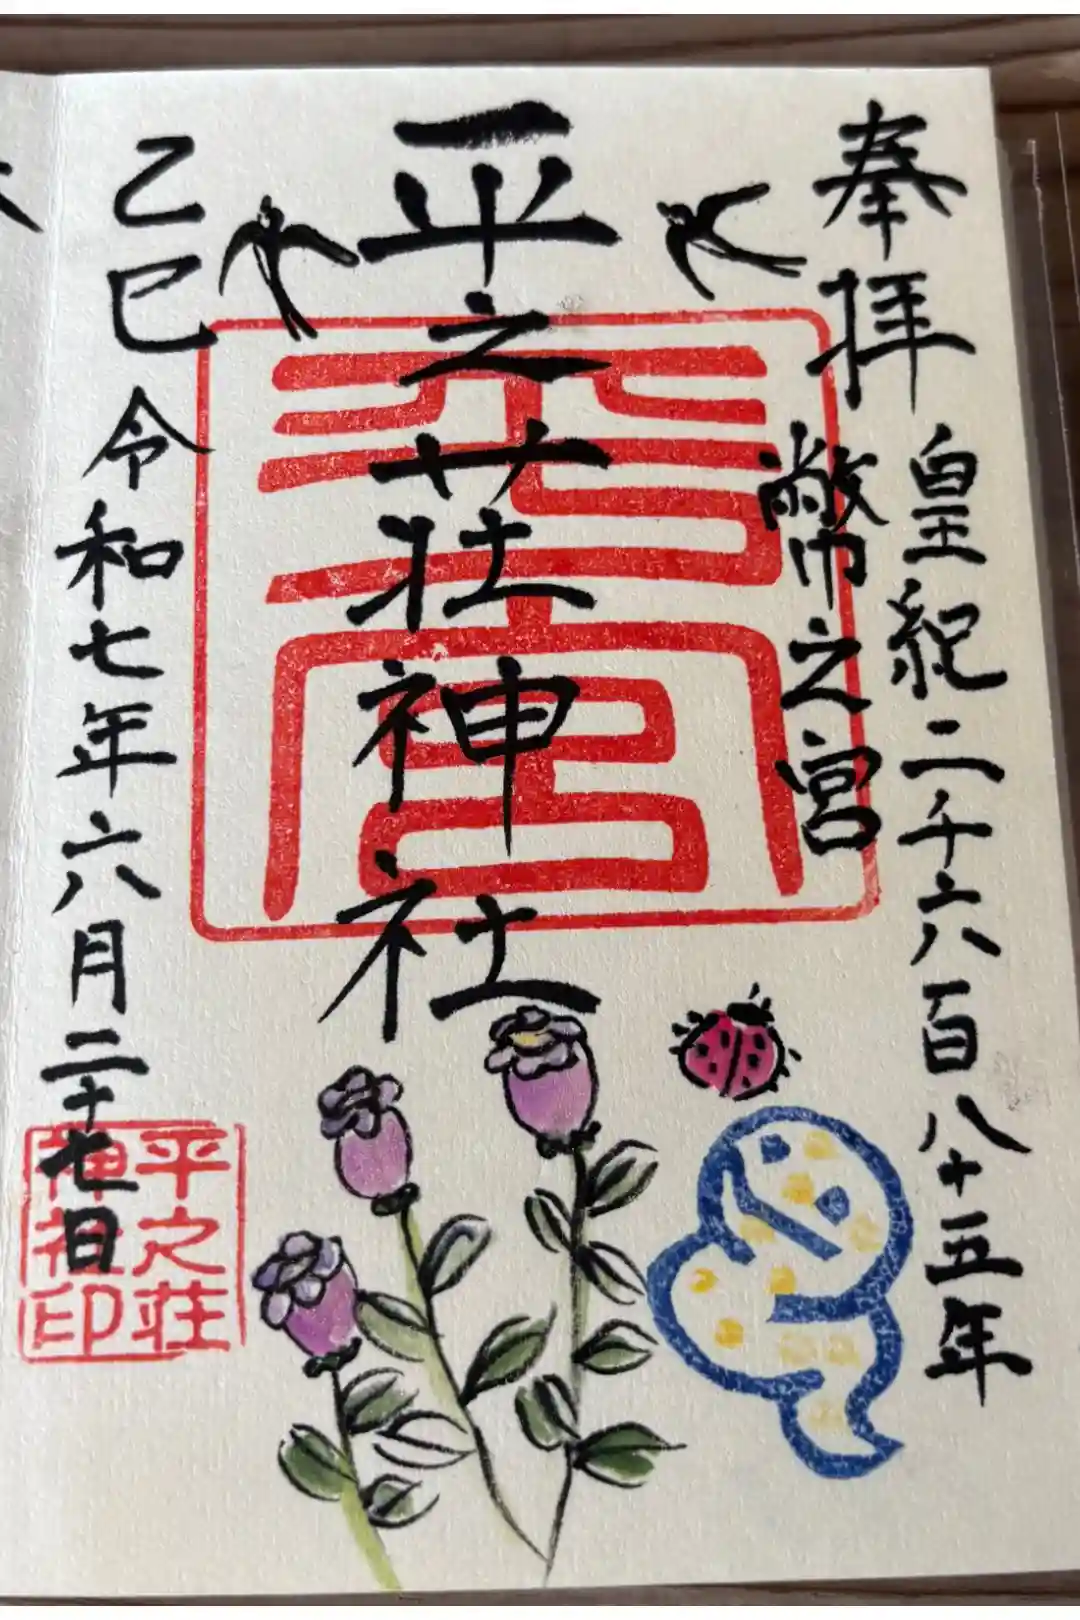 奉拝
皇紀二千六百八十五年
敝巾之宮
平之荘神社
乙巳
令和七年六月二十七日
平之荘
神社印